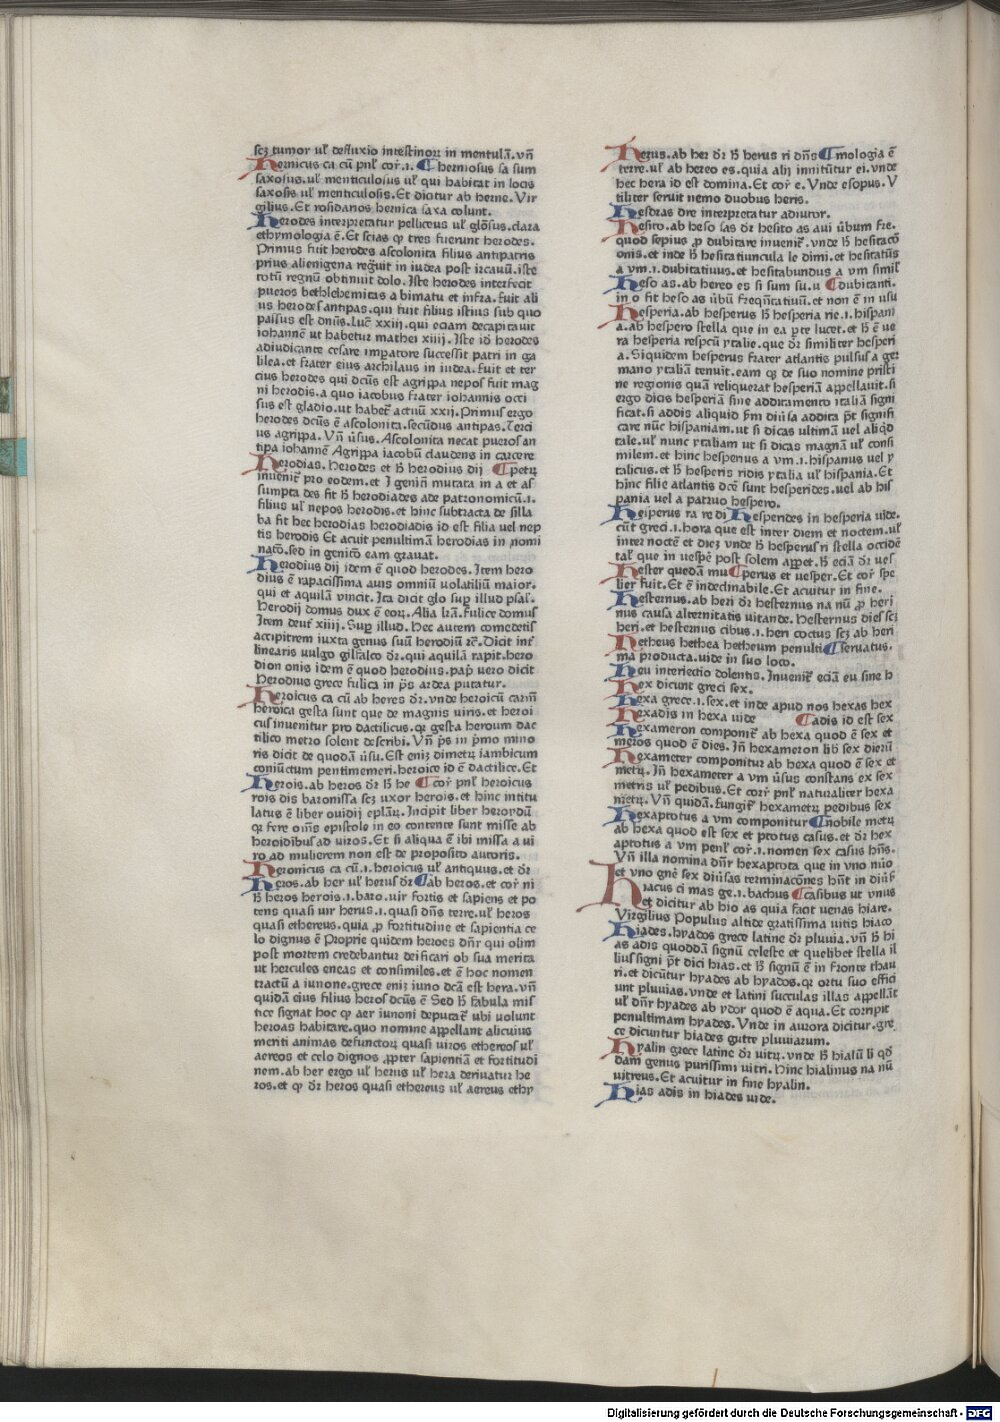 scꝫ tumor ul᷑ defluxio intestinoꝝ in mentulā.vn̄
Hernicus ca cū pnl᷑ cor᷑.i. ¶ hermosus sa sum
saxosus.ul᷑ menticulosus ul᷑ qui habitat in locis
saxosis ul᷑ menticulosis.Et dicitur ab herne.Vir
gilius.Et rosidanos hernica saxa colunt.
Herodes interpretatur pelliceus ul᷑ glōsus.clara
ethymologia ē.Et scias ꝙ tres fuerunt herodes.
Primus fuit herodes ascolonita filius antipatris
prius alienigena reg̃uit in iudea post ircauū.iste
totū regnū obtinuit dolo.Iste herodes interfecit
pueros bethlehemitas a bimatu et infra.fuit ali
us herodes antipas.qui fuit filius istius sub quo
passus est dn̄s.Luc̄ xxiij.qui eciam decapitauit
iohannē ut habetur mathei xiiij.Iste id᷑ herodes
adiudicante cesare imꝑatore successit patri in ga
lilea.et frater eius archilaus in iudea.fuit et ter
cius herodes qui dc̄us est agrippa nepos fuit mag
ni herodis.a quo iacobus frater iohannis occi
sus est gladio.ut habet᷑ actuū xxij.Primus ergo
herodes dc̄us ē ascolonita.secūdus antipas.Terci
us agrippa.Vn̄ ūsus.Ascolonita necat pueros an
tipa iohannē Agrippa iacobū claudens in carcere
Herodias.herodes et h᷑ herodius dij ¶ petꝝ
inuenit᷑ pro eodem.et I geniti mutata in a et as
sumpta des fit h᷑ herodiades ade patronomicū.i.
filius ul᷑ nepos herodis.et hinc subtracta de silla
ba fit hec herodias herodiadis id est filia uel nep
tis herodis Et acuit penultimā herodias in nomi
natō.sed in genitō eam grauat.
Herodius dij idem ē quod herodes.Item hero
dius ē rapacissima auis omniū volatiliū maior.
qui et aquilā vincit.Ita dicit glo suꝑ illud psal᷑.
Herodij domus dux ē eoꝝ.Alia lr̄a.fulice domus
Item deut᷑ xiiij.Suꝑ illud.Hec autem comedetis
accipitrem iuxta genus suū herodiū rc̄.Dicit int᷑
linearis vulgo gilfalco dr᷑.qui aquilā rapit.hero
dion onis idem ē quod herodius.pap᷑ vero dicit
Herodius grece fulica in pr̄s ardea putatur.
Heroicus ca cū ab heres dr᷑.vnde heroicū carm̄
heroica gesta sunt que de magnis viris.et heroi
cus inuenitur pro dactilicus.qr gesta heroum dac
tilico metro solent describi.Vn̄ pr̄s in pr̄mo mino
ris dicit de quodā ūsu.Est eniꝫ dimetꝝ iambicum
coniūctum pentimemeri.heroice id ē dactilice.Et
Herois.ab heros dr᷑ h᷑ he ¶ cor᷑ pnl᷑ heroicus
rois dis baronissa scꝫ uxor herois.et hinc intitu
latus ē liber ouidij epl̄aꝝ.Incipit liber heroydū
qr fere oīns epistole in eo contente sunt misse ab
heroidibus ad viros.Et si aliqua ē ibi missa a vi
ro ad mulierem non est de proposito autoris.
Heronicus ca cū.i.heroicus ul᷑ antiquus.et dr᷑
Heros.ab her ul᷑ herus dr᷑ ¶ ab heros.et cor᷑ ni
h᷑ heros herois.i.baro.uir fortis et sapiens et po
tens quasi uir herus.i.quasi dn̄s terre.ul᷑ heros
quasi ethereus.quia ꝓ fortitudine et sapientia ce
lo dignus ē Proprie quidem heroes dn̄r qui olim
post mortem credebantur deificari ob sua merita
ut hercules eneas et consimiles.et ē hoc nomen
tractū a iunone.grece eniꝫ iuno dc̄a est hera.vn̄
quidā eius filius heros dc̄us ē Sed h᷑ fabula mis
tice signat hoc ꝙ aer iunoni deputat᷑ ubi volunt
heroas habitare.quo nomine appellant alicuius
meriti animas defunctoꝝ quasi viros ethereos ul᷑
aereos et celo dignos ꝓpter sapientiā et fortitudi
nem.ab her ergo ul᷑ herus ul᷑ hera deriuatur he
ros.et ꝙ dr᷑ heros quasi ethereus ul᷑ aereus ethy
Herus.ab her dr᷑ h᷑ herus ri dn̄s ¶ mologia ē
terre.ul᷑ ab hereo es.quia alij innitūtur ei.vnde
hec hera id est domina.Et cor᷑ e.Vnde esopus.V
tiliter seruit nemo duobus heris.
Hesdras dre interpretatur adiutor.
Hesito.ab heso sas dr᷑ hesito as aui ūbum fre.
quod sepius ꝓ dubitare inuenit᷑.vnde h᷑ hesitacō
onis.et inde h᷑ hesitatiuncula le dimi.et hesitatiūs
a vm.i.dubitatiuus.et hesitabundus a vm simil᷑
Heso as.ab hereo es si sum su.u ¶ dubitanti.
in o fit heso as ūbū freqn̄tatiuū.et non ē in usu
Hesperia.ab hesperus h᷑ hesperia rie.i.hispani
a.ab hespero stella que in ea ꝑte lucet.et h᷑ ē ue
ra hesperia respc̄u ytalie.que dr᷑ similiter hesperi
a.Siquidem hesperus frater atlantis pulsus a ger
mano ytaliā tenuit.eam qꝫ de suo nomine pristi
ne regionis quā reliquerat hesperiā appellauit.si
ergo dicis hesperiā sine additamento italiā signi
ficat.si addis aliquid ẜm diūsa addita pōt signifi
care nūc hispaniam.ut si dicas ultimā uel aliqđ
tale.ul᷑ nunc ytaliam ut si dicas magnā ul᷑ consi
milem.et hinc hesperius a vm.i.hispanus uel y
talicus.et h᷑ hesperis ridis ytalia ul᷑ hispania.Et
hinc filie atlantis dc̄e sunt hesperides.uel ab his
pania uel a patruo hespero.
Hesperus ra re di Hesperides in hesperia uide.
cūt greci.i.hora que est inter diem et noctem.ul᷑
inter noctē et dieꝫ vnde h᷑ hesperus ri stella occidē
tal᷑ que in uespe᷑ post solem appet.h᷑ eciā dr᷑ ues
Hester quedā mu ¶ perus et uesper.Et cor᷑ spe
lier fuit.Et ē indeclinabile.Et acuitur in fine.
Hesternus.ab heri dr᷑ hesternus na nū ꝓ heri
nus causa alternitatis uitande.hesternus dies scꝫ
heri.et hesternus cibus.i.heri coctus scꝫ ab heri
Hetheus hethea hetheum penulti ¶ seruatus.
ma producta.uide in suo loco.
Heu interiectio dolentis.Inuenit᷑ eciā eu sine h
Hex dicunt greci sex.
Hexa grece.i.sex.et inde apud nos hexas hex
Hexadis in hexa uide ¶ adis id est sex
Hexameron componit᷑ ab hexa quod ē sex et
meros quod ē dies.Jn̄ hexameron lib᷑ sex dierū
Hexameter componitur ab hexa quod ē sex et
metꝝ.Jn̄ hexameter a vm ūsus constans ex sex
metris ul᷑ pedibus.Et corr᷑ pnl᷑ naturaliter hexa
metꝝ.Vn̄ quidā.fungit᷑ hexametꝝ pedibus sex
Hexaptotus a vm componitur ¶ nobile metꝝ
ab hexa quod est sex et ptotus casus.et dr᷑ hex
aptotus a vm penl᷑ cor᷑.i.nomen sex casus hn̄s.
Vn̄ illa nomina dn̄r hexaptota que in vno nūo
et vno gn̄e sex diūsas terminacōnes hn̄t in diūs᷑
Hiacus ci mas ge.i.bachus ¶ casibus ut vnus
et dicitur ab hio as quia facit uenas hiare.
Virgilius Populus altide gratissima uitis hiaco
Hiades.hyados grece latine dr᷑ pluuia.vn̄ h᷑ hi
as adis quoddā signū celeste et quelibet stella il
lius signi pōt dici hias.et h᷑ signū ē in fronte thau
ri.et dicūtur hyades ab hyados.qr ortu suo effici
unt pluuias.vnde et latini succulas illas appellāt
ul᷑ dn̄r hyades ab ydor quod ē aqua.Et corripit
penultimam hyades.Vnde in aurora dicitur.gre
ce dicuntur hiades gutte pluuiarum.
Hyalin grece latine dr᷑ uitꝝ.vnde h᷑ hialū li qđ
dam genus purissimi uitri.Hinc hialinus na nū
uitreus.Et acuitur in fine hyalin.
Hias adis in hiades uide.
Digitalisierung gefördert durch die Deutsche Forschungsgemeinschaft - DFG